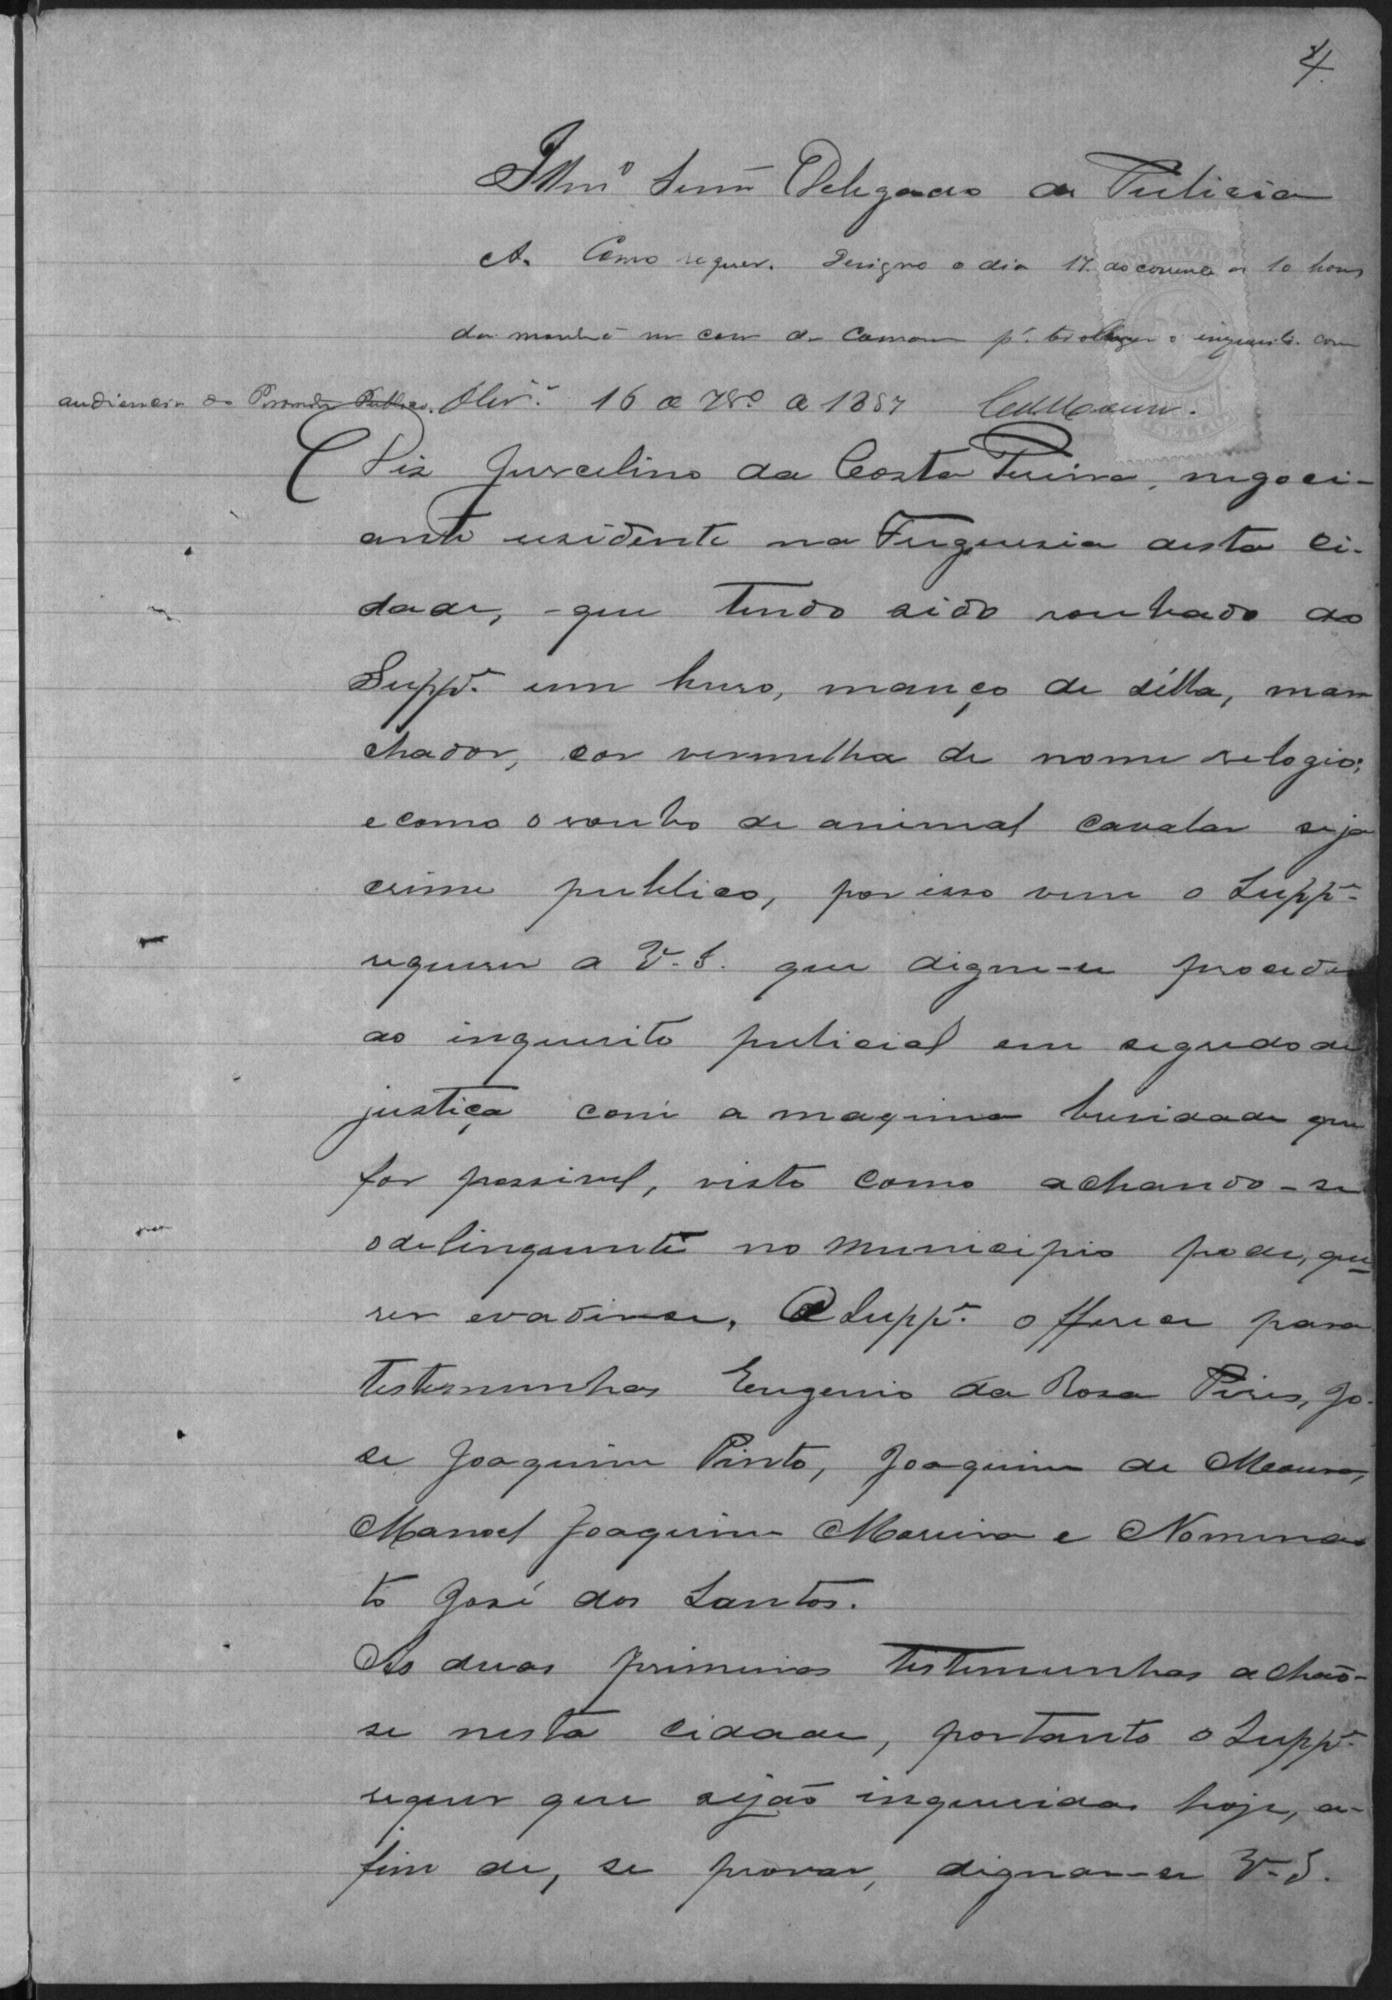 4
Illm.º Senr. Delegado de Policia
A. Como requer. Designo o dia 17 do corrente as 10 horas
da manhã na casa da Camara p.ª ter lugar o inquerito com
audiencia do Promotor Publico. Oliv.ª 16 de 1887
Diz Jurcelino da Costa Pereira, negoci-
ante residente na Freguesia desta ci-
dade, - que tendo sido roubado ao
Supp.e um burro, manço de sélla, mar
chador, cor vermelha de nome relogio;
e como o roubo de animal cavalar seja
crime publico, por isso vem o Supp.e
requerer a V. S. que digne-se proceder
ao inquerito policial em segredo de
justiça com a maquima brevidade que
for possivel, visto como achando-se
o delinquente no municipio pode, que
rer evadir-se. O Supp.e offerece para
testemunhas Eugenio da Rosa Pires, Jo-
se Joaquim Pinto, Joaquim de Moura,
Manoel Joaquim Moreira e Nomina
to José dos Santos.
As duas primeiras testemunhas achão-
se nesta cidade, portanto o Supp.e
requer que sejão inqueridas hoje, a-
fim de, se provar, dignar-se V. S.